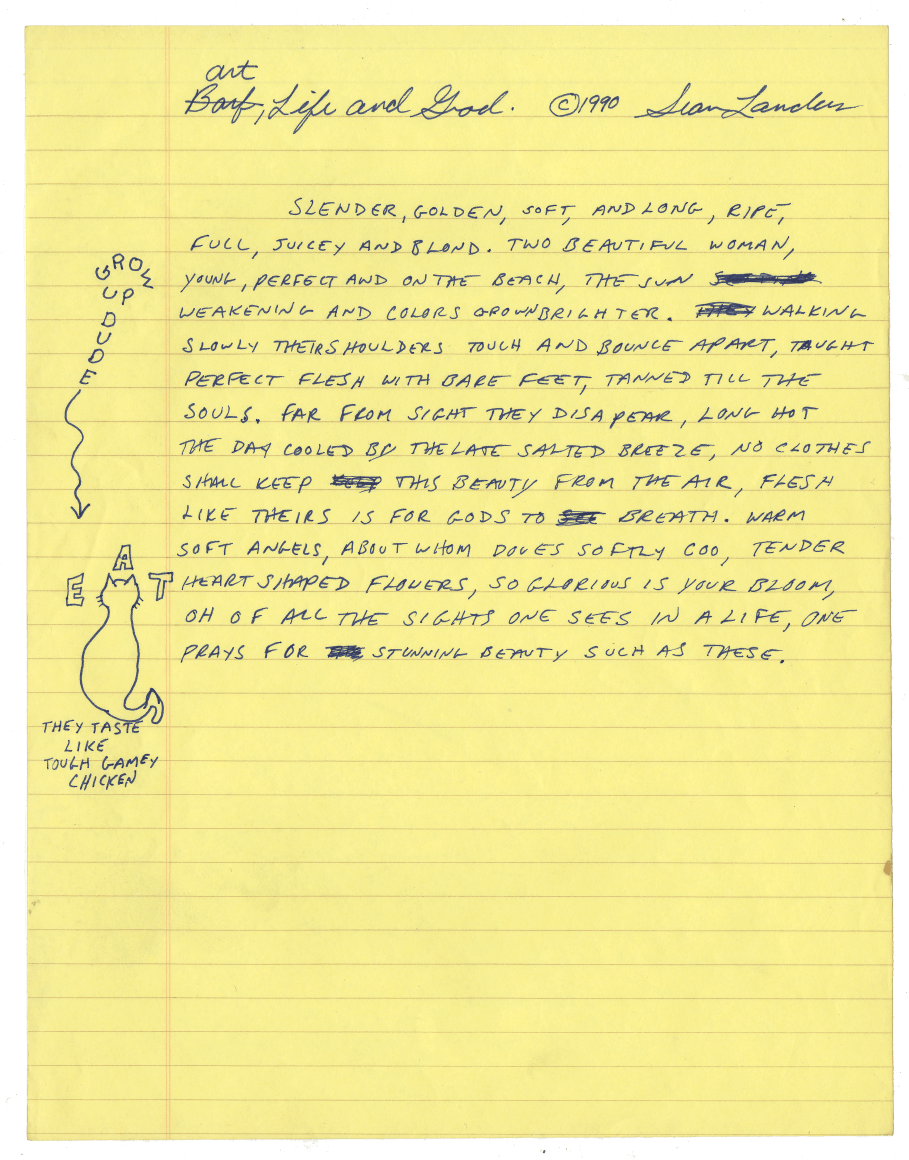 art
Barf, Life and God. ©1990 Sean Landers
SLENDER, GOLDEN, SOFT, AND LONG, RIPE,
FULL, JUICEY AND BLOND. TWO BEAUTIFUL WOMAN,
YOUNG, PERFECT AND ON THE BEACH, THE SUN
WEAKENING AND COLORS GROWN BRIGHTER. THEY WALKING
SLOWLY THEIR SHOULDERS TOUCH AND BOUNCE APART, TAUGHT
PERFECT FLESH WITH BARE FEET, TANNED TILL THE
SOULS. FAR FROM SIGHT THEY DISAPEAR, LONG HOT
THE DAY COOLED BY THE LATE SALTED BREEZE, NO CLOTHES
SHALL KEEP THIS BEAUTY FROM THE AIR, FLESH
LIKE THEIRS IS FOR GODS TO BREATH. WARM
SOFT ANGELS, ABOUT WHOM DOVES SOFTLY COO, TENDER
HEART SHAPED FLOWERS, SO GLORIOUS IS YOUR BLOOM,
OH OF ALL THE SIGHTS ONE SEES IN A LIFE, ONE
PRAYS FOR STUNNING BEAUTY SUCH AS THESE.
GROW
UP
DUDE
EAT
THEY TASTE
LIKE
TOUGH GAMEY
CHICKEN